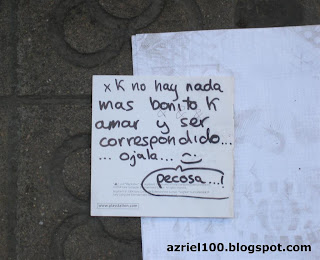 x K no hay nada
mas bonito K
amar y ser
correspondido...
... ojala...
pecosa...!
azriel100.blogspot.com